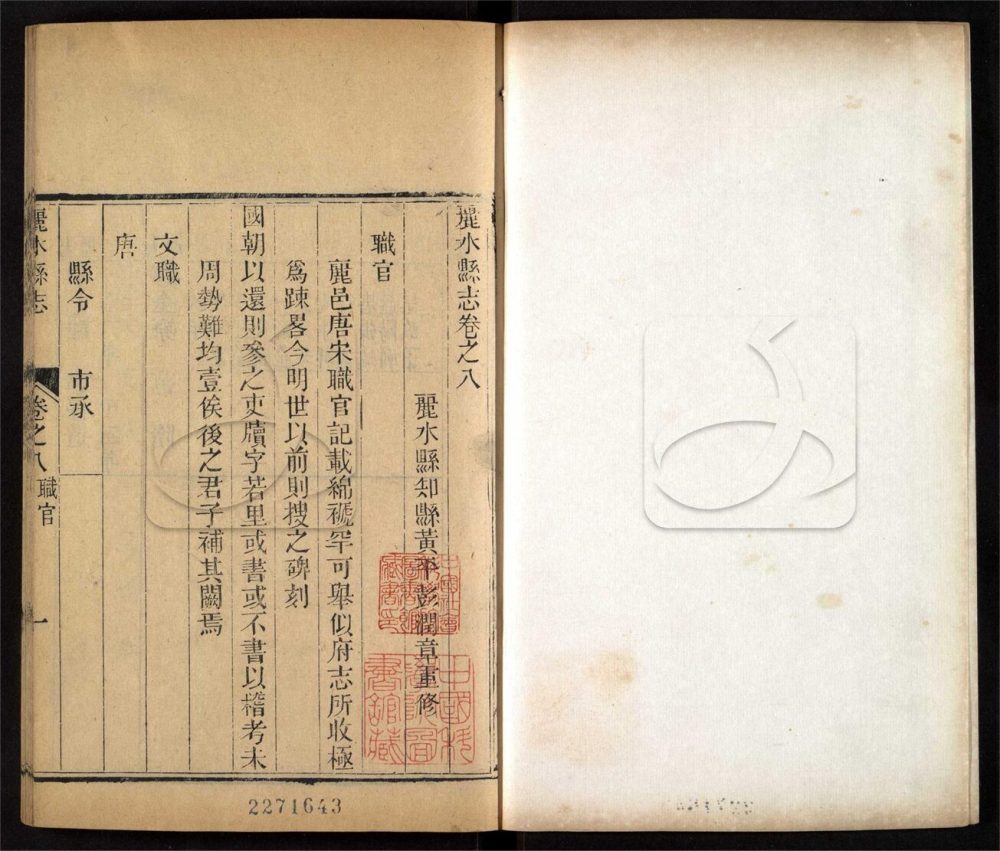 麗水縣志卷之八
麗水縣知縣黃平彭潤章重修
職官
麗邑唐宋職官記載綿褫罕可舉似府志所收極
爲踈畧今明世以前則搜之碑刻
國朝以還則參之吏牘字若里或書或不書以稽考未
周勢難均壹俟後之君子補其闕焉
文職
唐
縣令 市丞
麗水縣志 卷之八 職官 一
2271643